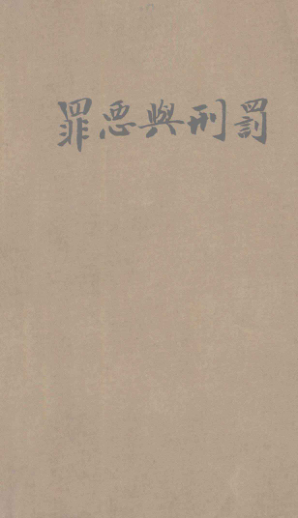 罪惡與刑罰